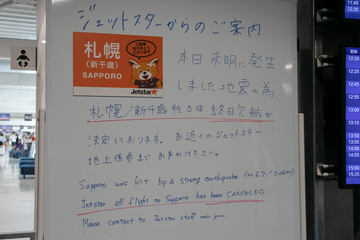 ジェットスターからのご案内
札幌
(新千歳)
SAPPORO
Jetstar
本日未明に発生
しました地震の為
札幌/新千歳行きは終日欠航が
決定しております。お近くのジェットスター
地上係員までお声がけ下さい。
Sapporo was hit by a strong earthquake
Jetstar all flight to Sapporo has been CANCELED
Please contact to Jetstar staff near you.
12:20
12:25